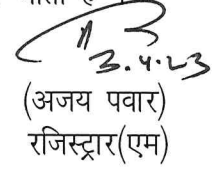 3.4.23
(अजय पवार)
रजिस्ट्रार(एम)